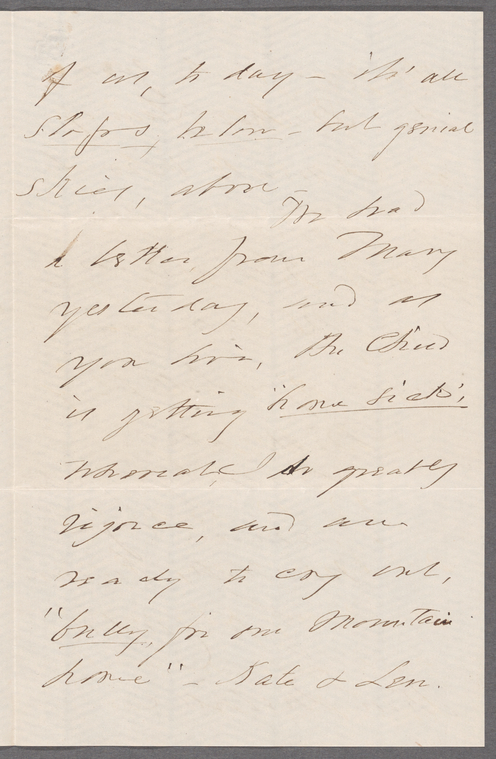 of us, to day - it's all
slops, below - but genial
skies, above -
We had
a letter from Mary
yesterday, and as
you live, the Child
is getting "home sick",
whereat, I do greatly
rejoice, and am
ready to cry out,
"bully, for our Mountain
home" - Kate & Len.